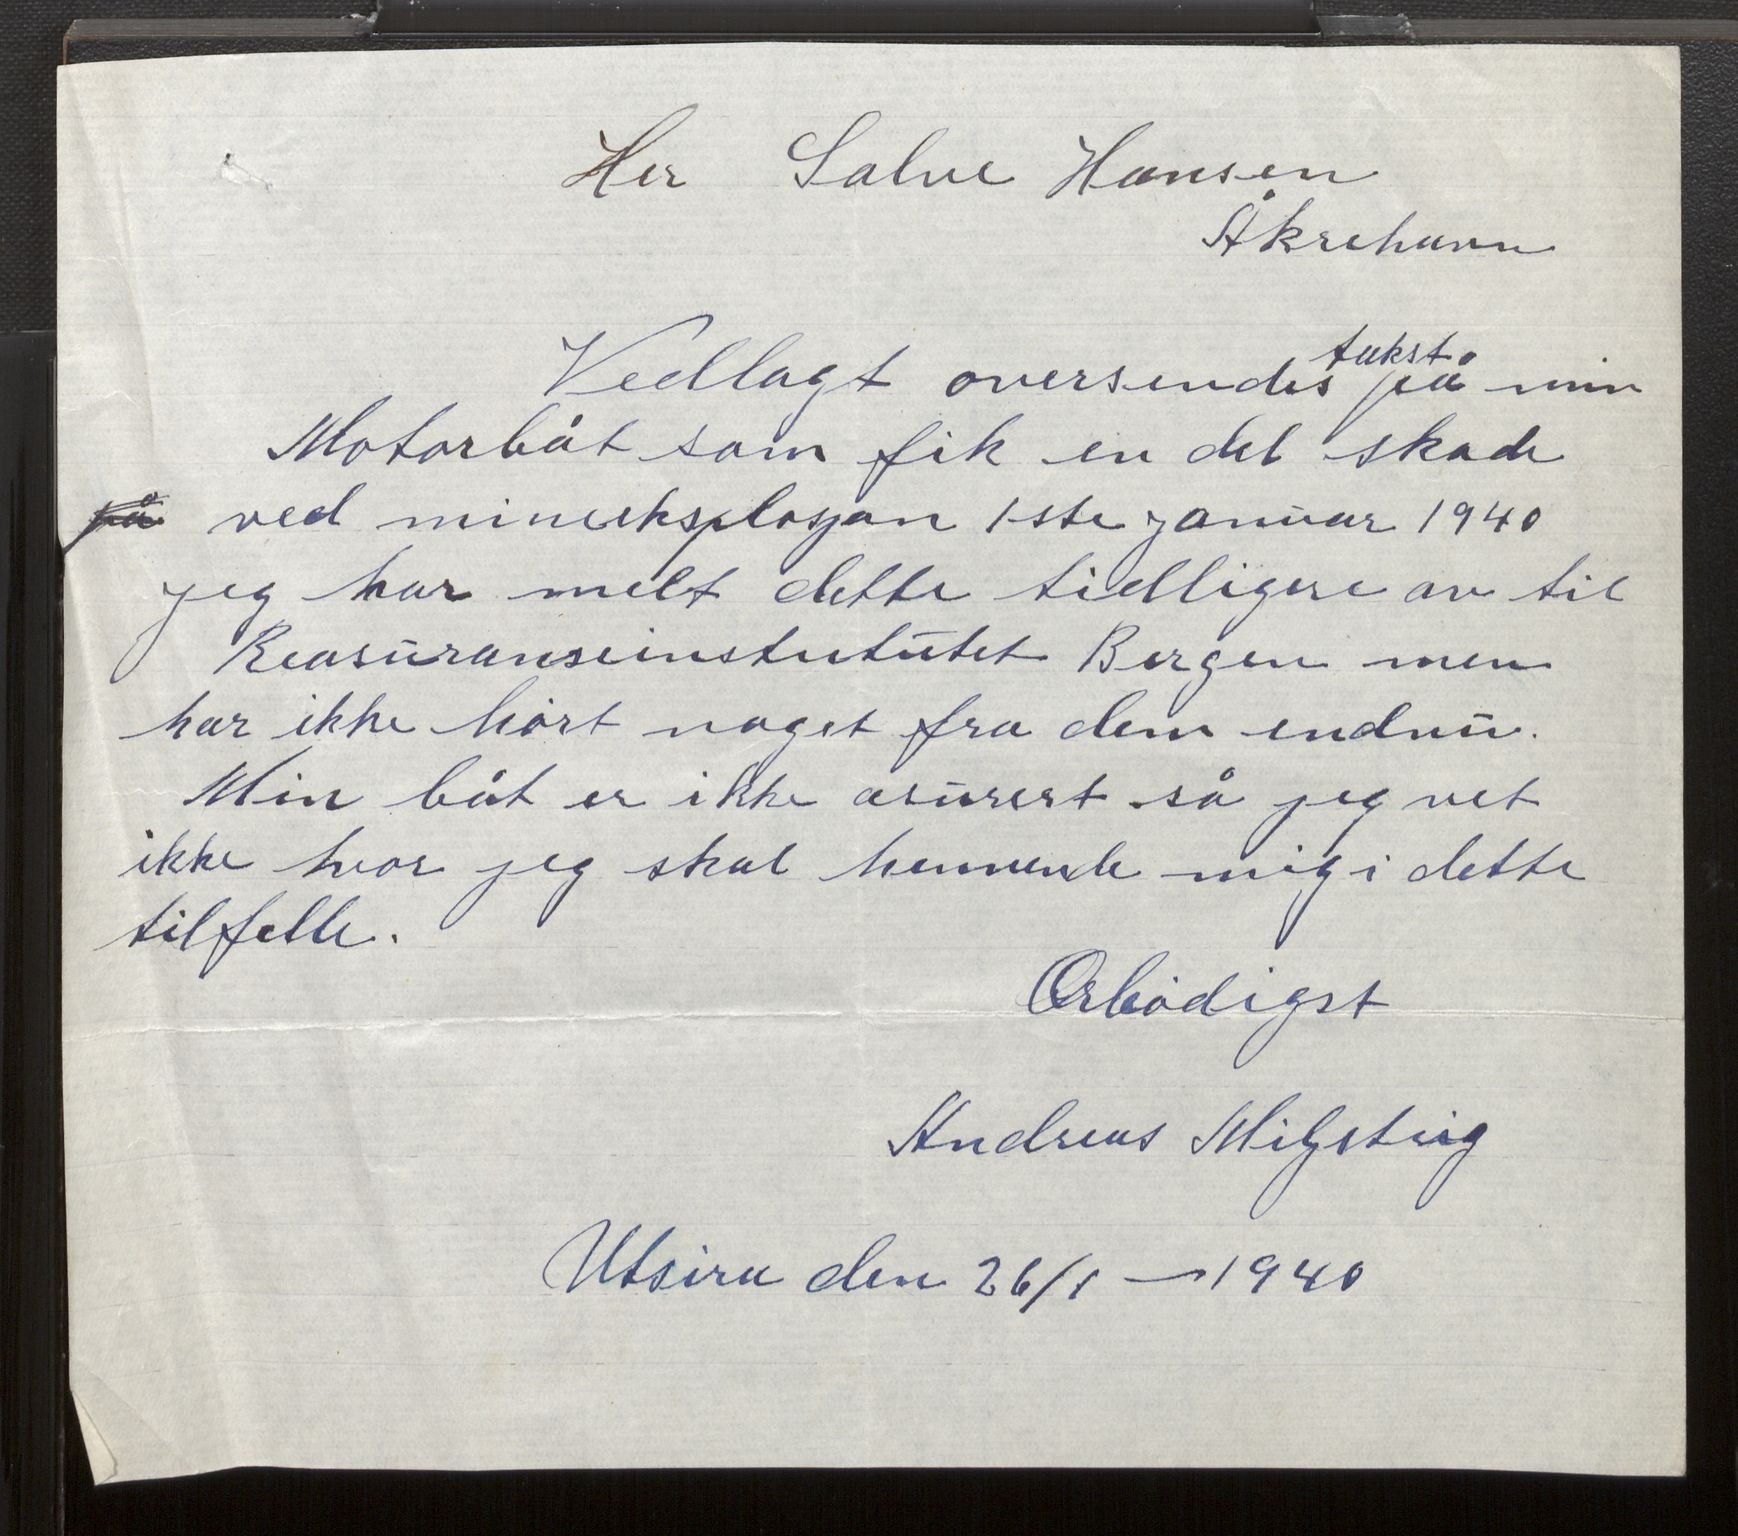 Her Salve Hansen
Åkrehavn
Vedlagt oversendes takst på min
Motorbåt som fik en del skade
på ved mineeksplosjon 1-ste januar 1940
jeg har melt dette tidlligere av til
Reasuranseinstututet Bergen men
har ikke hørt noget fra dem endnu.
Min båt er ikke asurert så jeg vet
ikke hvor jeg skal henvende mig i dette
tilfelle.
Ærbødigst
Andreas
Utsira den 26/1 - 1940